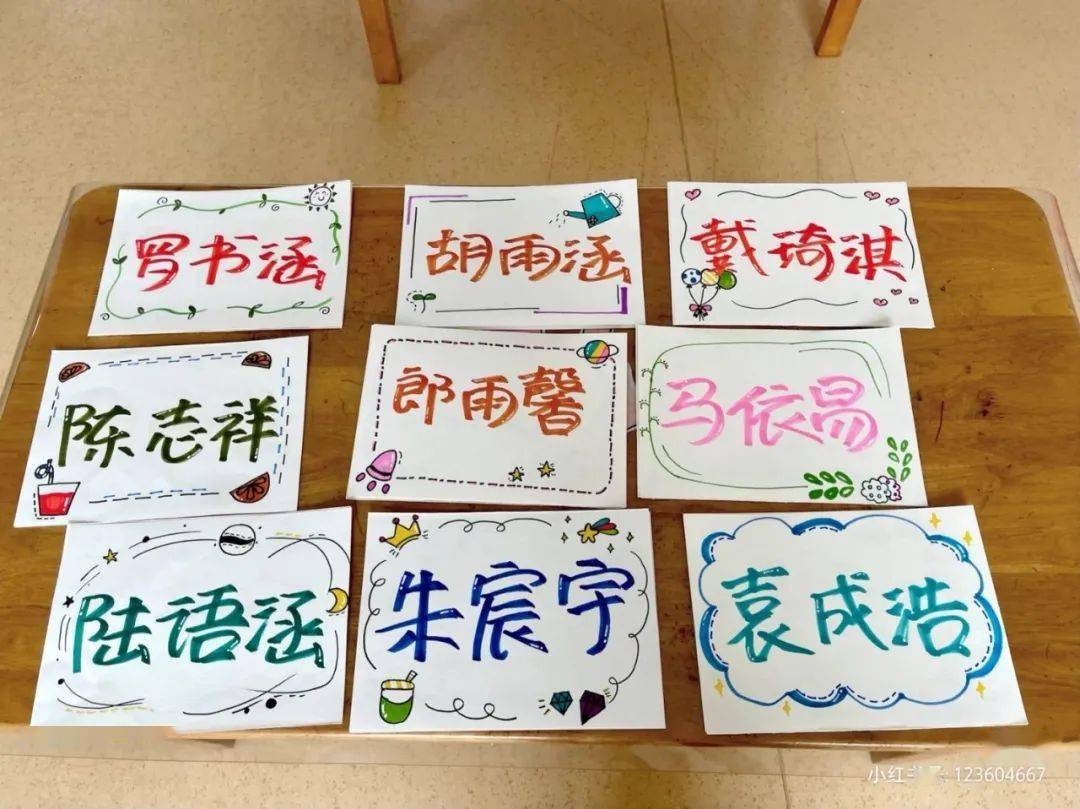 罗书涵
胡雨涵
戴琦淇
陈志祥
郎雨馨
马依易
陆语涵
朱宸宇
袁成浩
小红书号: 123604667